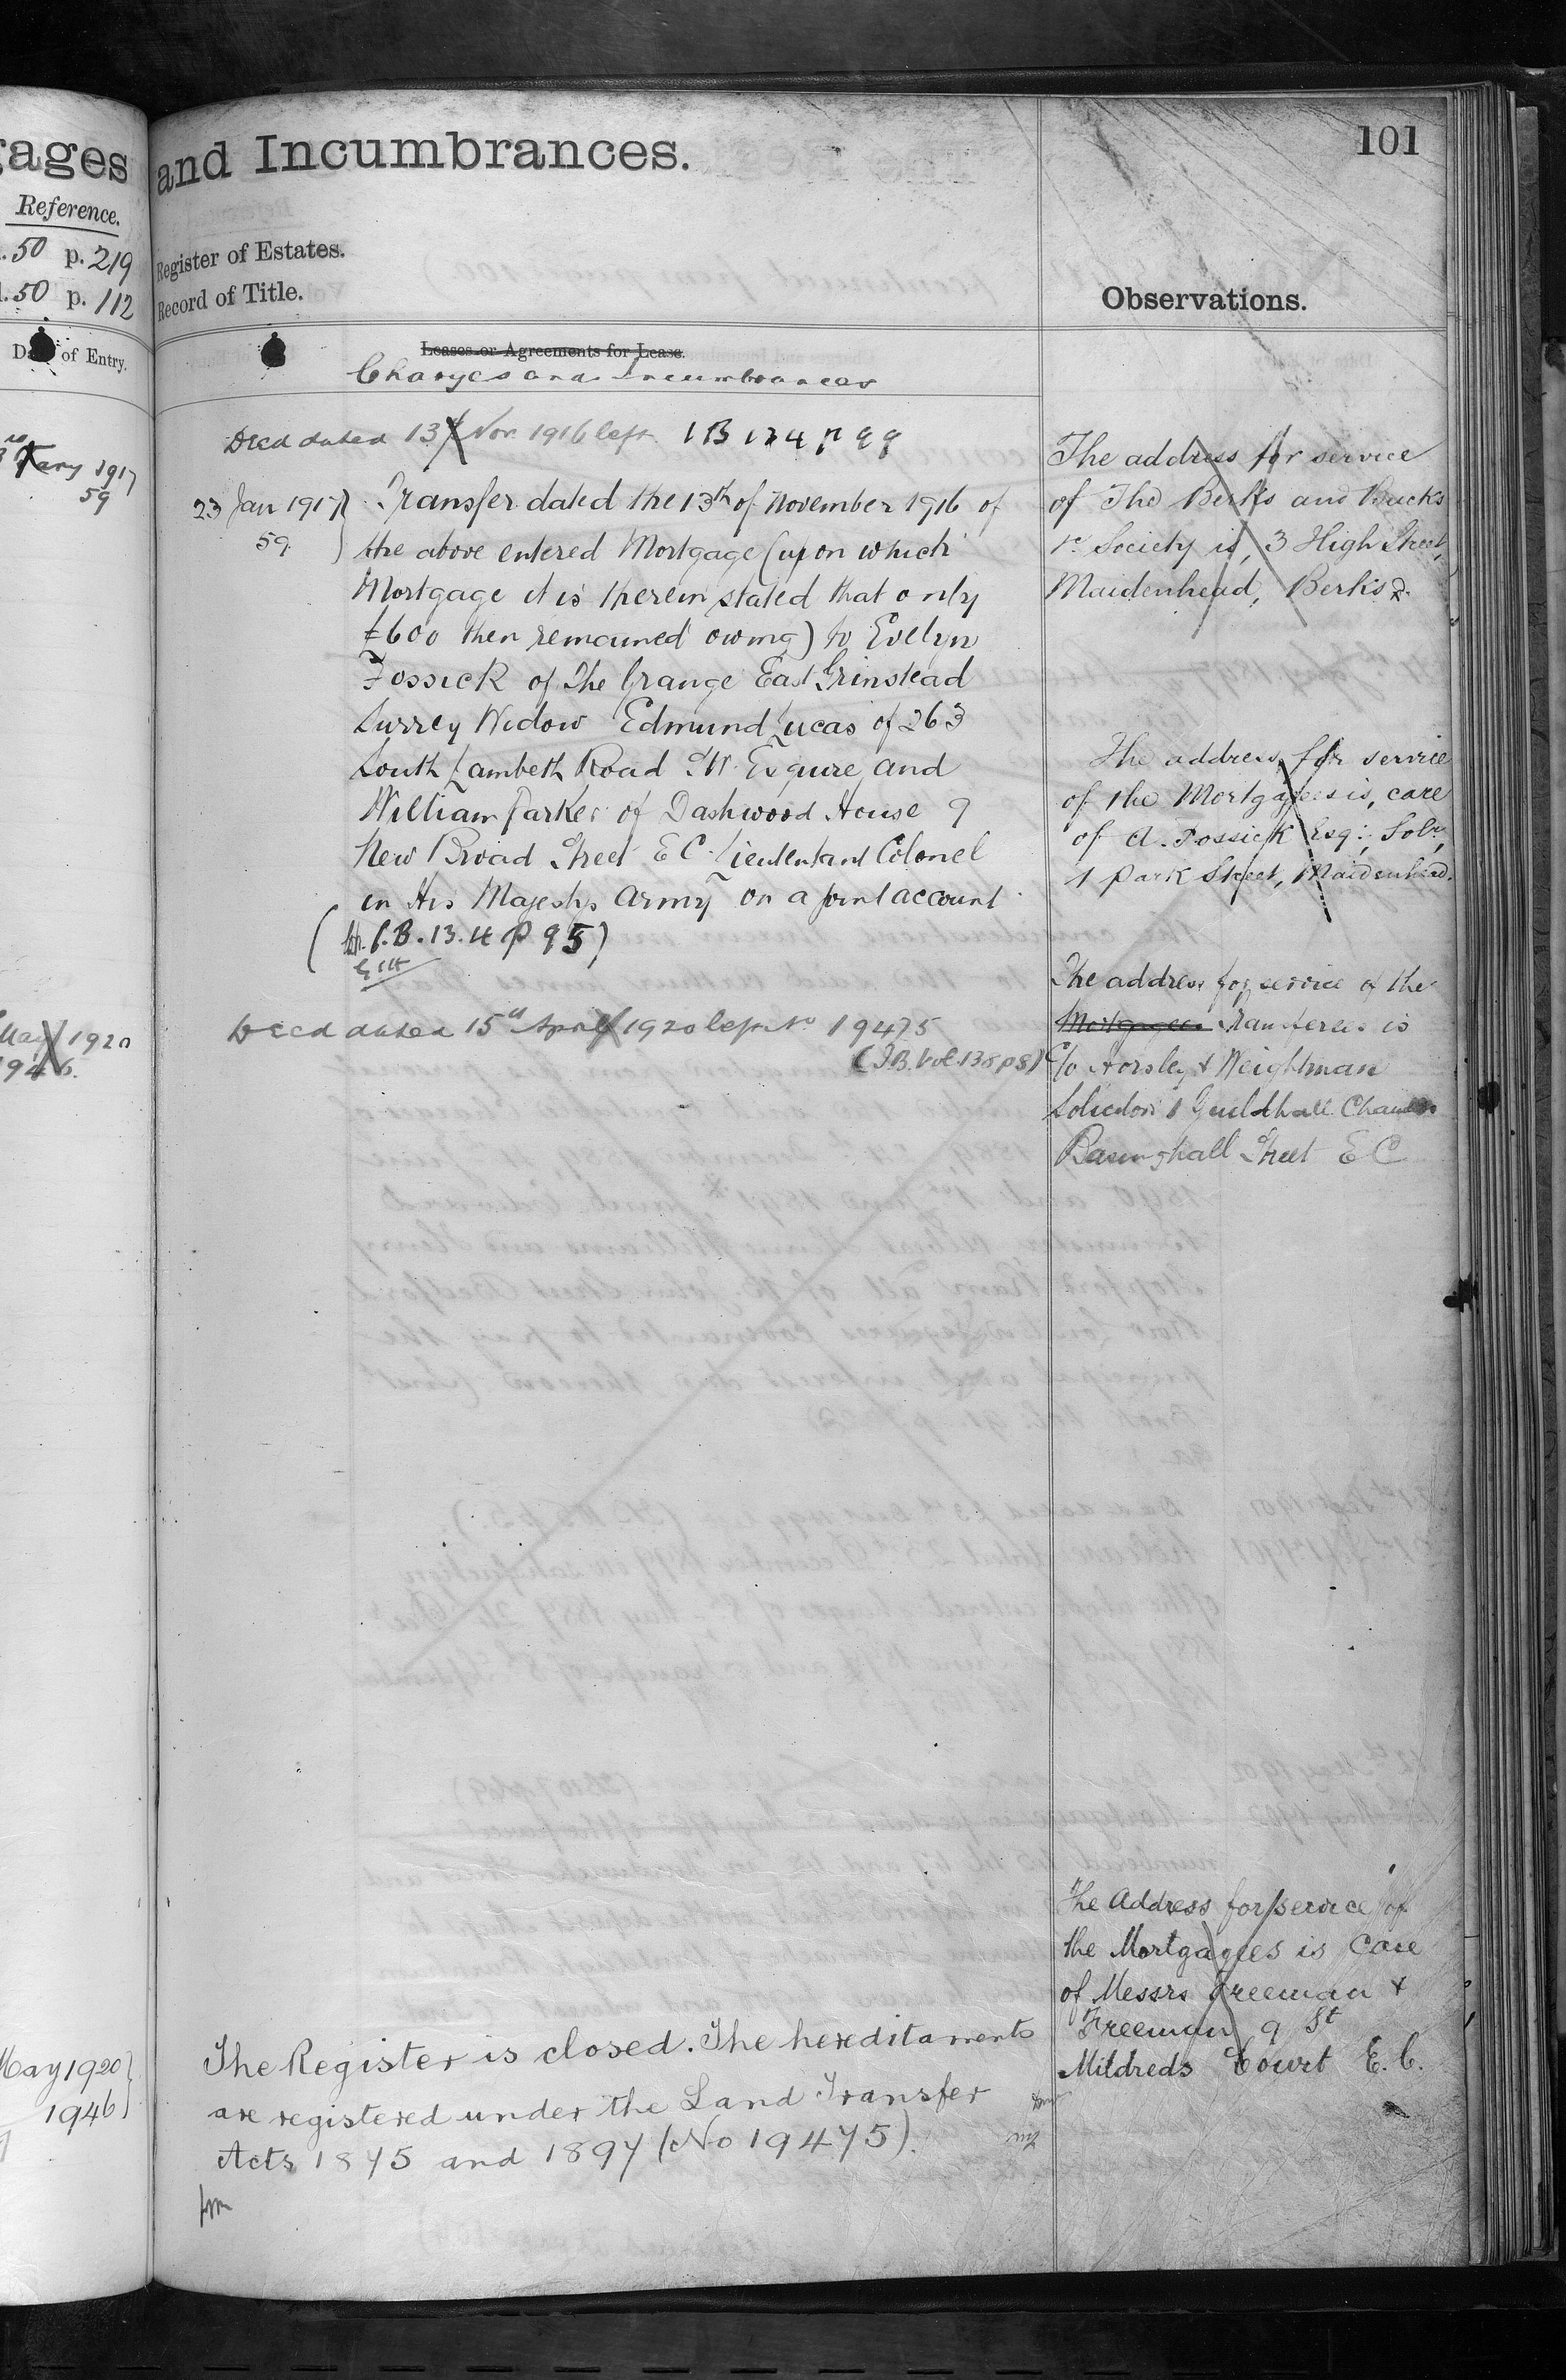 gages
Reference.
50 p. 219
50 p. 112
Date of Entry.
1917
59
May 1920
1946.
May 1920
1946
and Incumbrances.
Register of Estates.
Record of Title.
Leases or Agreements for Lease.
Charges and Incumbrances
Deed dated 13th Nov. 1916 left
23 Jan 1917 Transfer dated the 13th of November 1916 of
59 the above entered Mortgage (upon which
Mortgage it is therein stated that only
£600 then remained owing) to Evelyn
Fossick of The Grange East Grinstead
Surrey Widow Edmund Lucas of 263
South Lambeth Road SW Esquire and
William Parker of Dashwood House 9
New Broad Street E C Lieutentant Colonel
in His Majestys Army on a joint account
p 95)
Deed dated 15th April 1920 left No 19475
(I.B. Vol. 138 p 8)
The Register is closed. The hereditaments
are registered under the Land Transfer
Acts 1875 and 1897 (No 19475).
101
Observations.
The address for service
of The Berks and Bucks
Society is, 3 High Street,
Maidenhead, Berks.
The address for service
of the Mortgagees is, care
of A. Fossick Esq., Solr,
1 Park Street, Maidenhead.
The address for service of the
Mortgagees Transferees is
c/o Horsley & Weightman
Solicitors 1 Guildhall
Basinghall Street E C
The Address for service of
the Mortgagees is Care
of Messrs Freeman &
Freeman 9 St
Mildreds Court E. C.